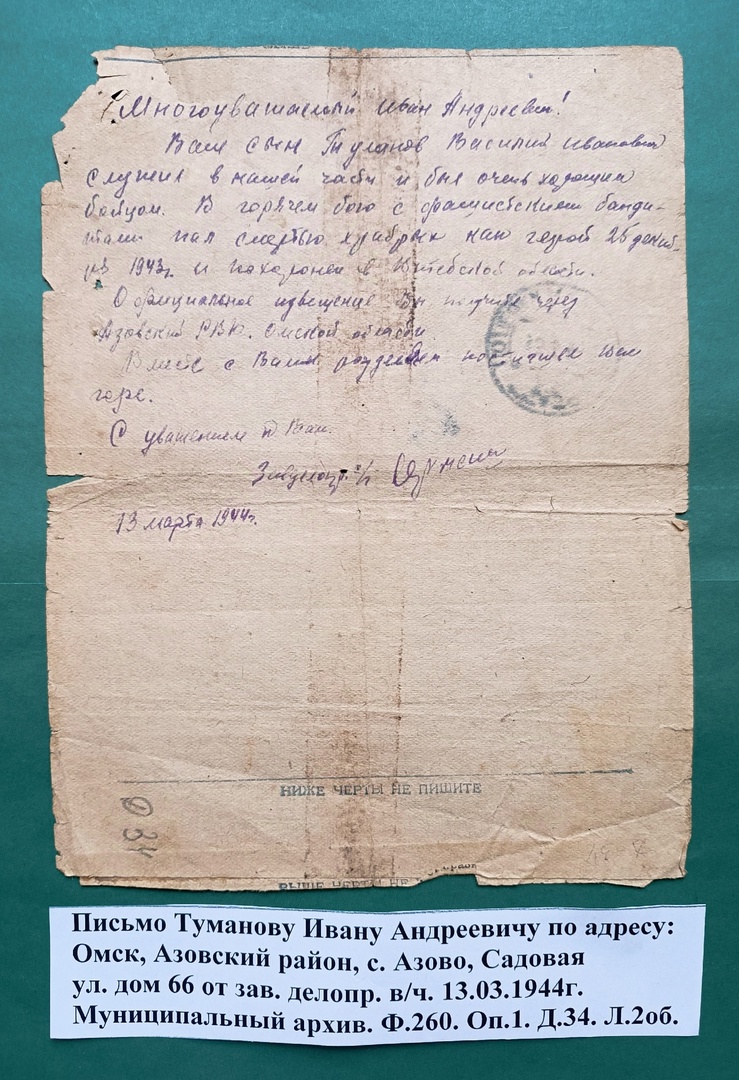 Многоуважаемый Иван Андреевич!
Ваш сын Туманов Василий Иванович
служил в нашей части и был очень хорошим
бойцом. В горячем бою с фашистскими банди-
тами пал смертью храбрых как герой 25 декаб-
ря 1943г. и похоронен в Витебской области.
Официальное извещение Вы получите через
Азовский РВК. Омской области.
Вместе с Вами разделяем постигшее Вас
горе.
С уважением к Вам.
13 марта 1944г.
НИЖЕ ЧЕРТЫ НЕ ПИШИТЕ
ВЫШЕ ЧЕРТЫ НЕ
Ф 34
Письмо Туманову Ивану Андреевичу по адресу:
Омск, Азовский район, с. Азово, Садовая
ул. дом 66 от зав. делопр. в/ч. 13.03.1944г.
Муниципальный архив. Ф.260. Оп.1. Д.34. Л.2об.